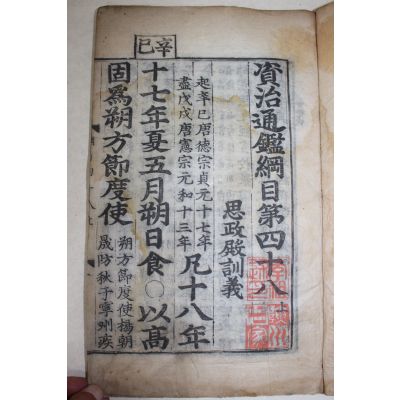 資治通鑑綱目第四十八
思政殿訓義
起辛巳唐德宗貞元十七年
盡戊戌唐憲宗元和十三年
凡十八年
辛巳
十七年夏五月朔日食○以高
固爲朔方節度使
朔方節度使楊朝
晟防秋于寧州疾